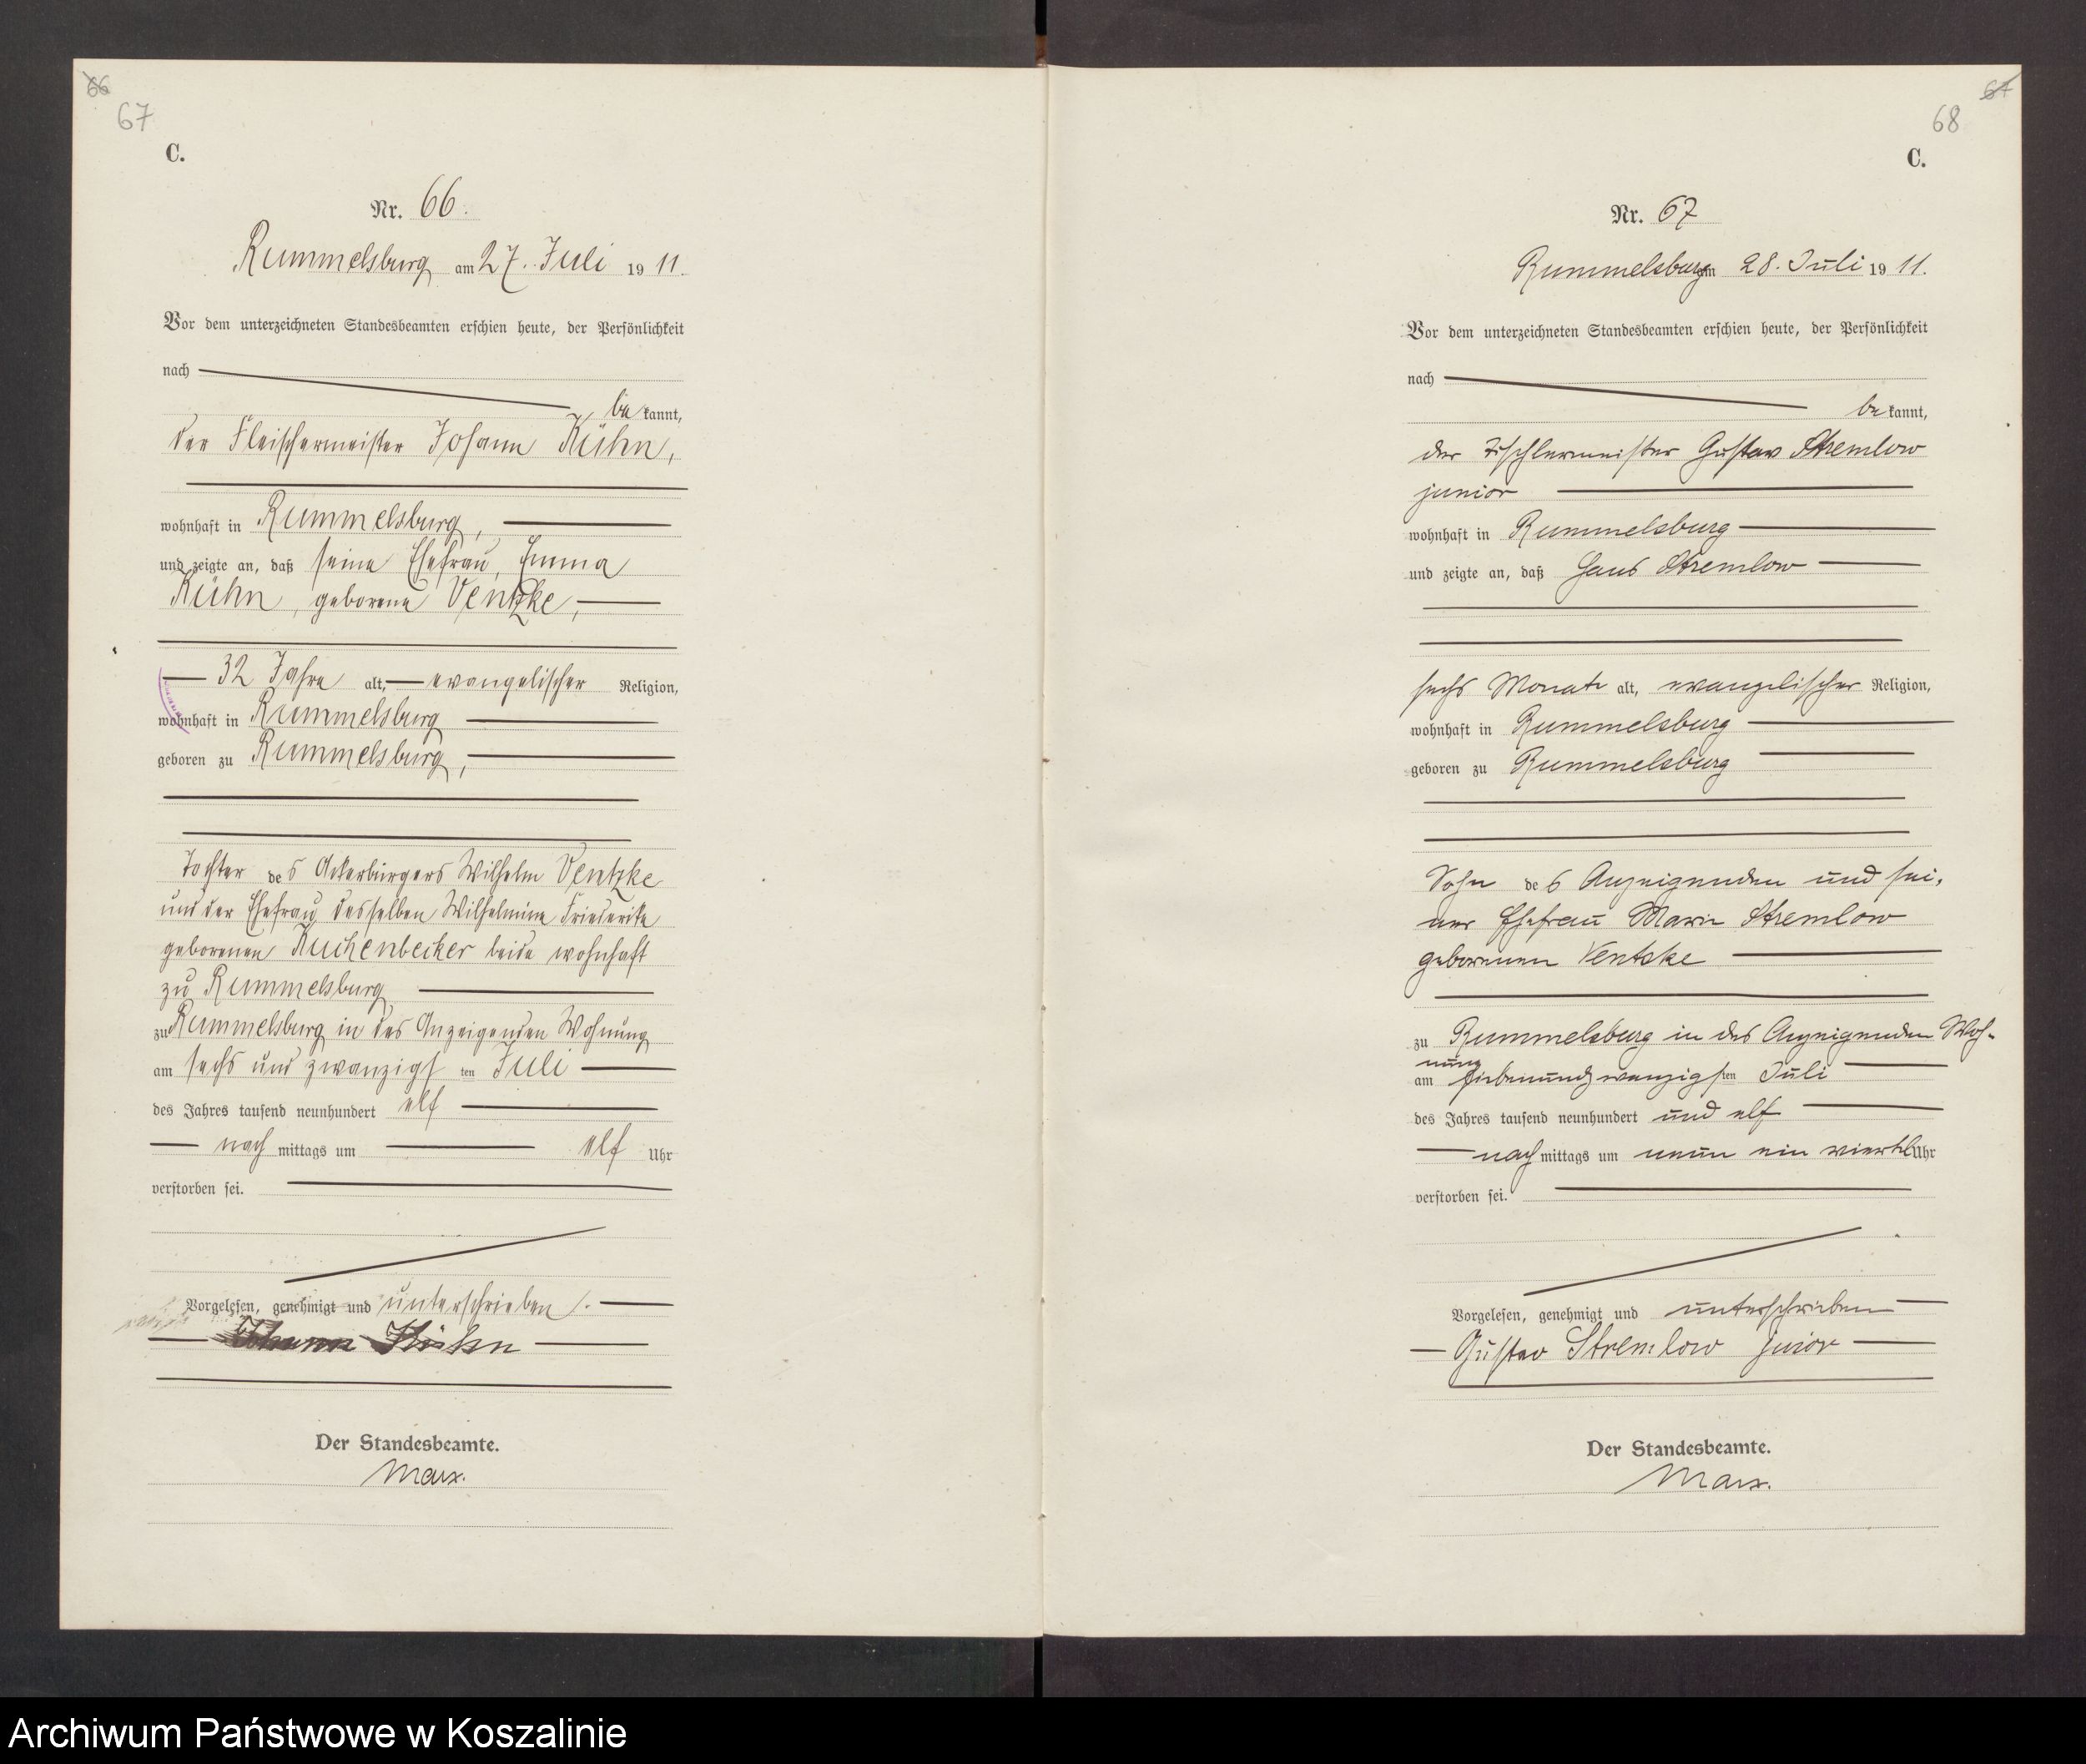 66
67
C.
Nr. 66.
Rummelsburg am 27. Juli 1911.
Vor dem unterzeichneten Standesbeamten erschien heute, der Persönlichkeit
nach
be kannt,
der Fleischermeister Johann Kühn,
wohnhaft in Rummelsburg,
und zeigte an, daß seine Ehefrau, Emma
Kühn, geborene Ventzke,
32 Jahre alt, evangelischer Religion,
wohnhaft in Rummelsburg
geboren zu Rummelsburg,
Tochter des Ackerbürgers Wilhelm Ventzke
und der Ehefrau desselben Wilhelmine Friederike
geborenen Kuchenbecker beide wohnhaft
zu Rummelsburg
zu Rummelsburg in des Anzeigenden Wohnung
am sechs und zwanzigsten Juli
des Jahres tausend neunhundert elf
nach mittags um elf Uhr
verstorben sei.
Vorgelesen, genehmigt und unterschrieben
Johann Kühn
Der Standesbeamte.
Marx.
67
68
C.
Nr. 67
Rummelsburg am 28. Juli 1911.
Vor dem unterzeichneten Standesbeamten erschien heute, der Persönlichkeit
nach
be kannt,
der Tischlermeister Gustav Stremlow
junior
wohnhaft in Rummelsburg
und zeigte an, daß Hans Stremlow
sechs Monate alt, evangelischer Religion,
wohnhaft in Rummelsburg
geboren zu Rummelsburg
Sohn des Anzeigenden und sei-
ner Ehefrau Marie Stremlow
geborenen Ventzke
zu Rummelsburg in des Anzeigenden Woh-
nung
am siebenundzwanzigsten Juli
des Jahres tausend neunhundert und elf
nach mittags um neun ein viertel Uhr
verstorben sei.
Vorgelesen, genehmigt und unterschrieben
Gustav Stremlow junior
Der Standesbeamte.
Marx.
Archiwum Państwowe w Koszalinie